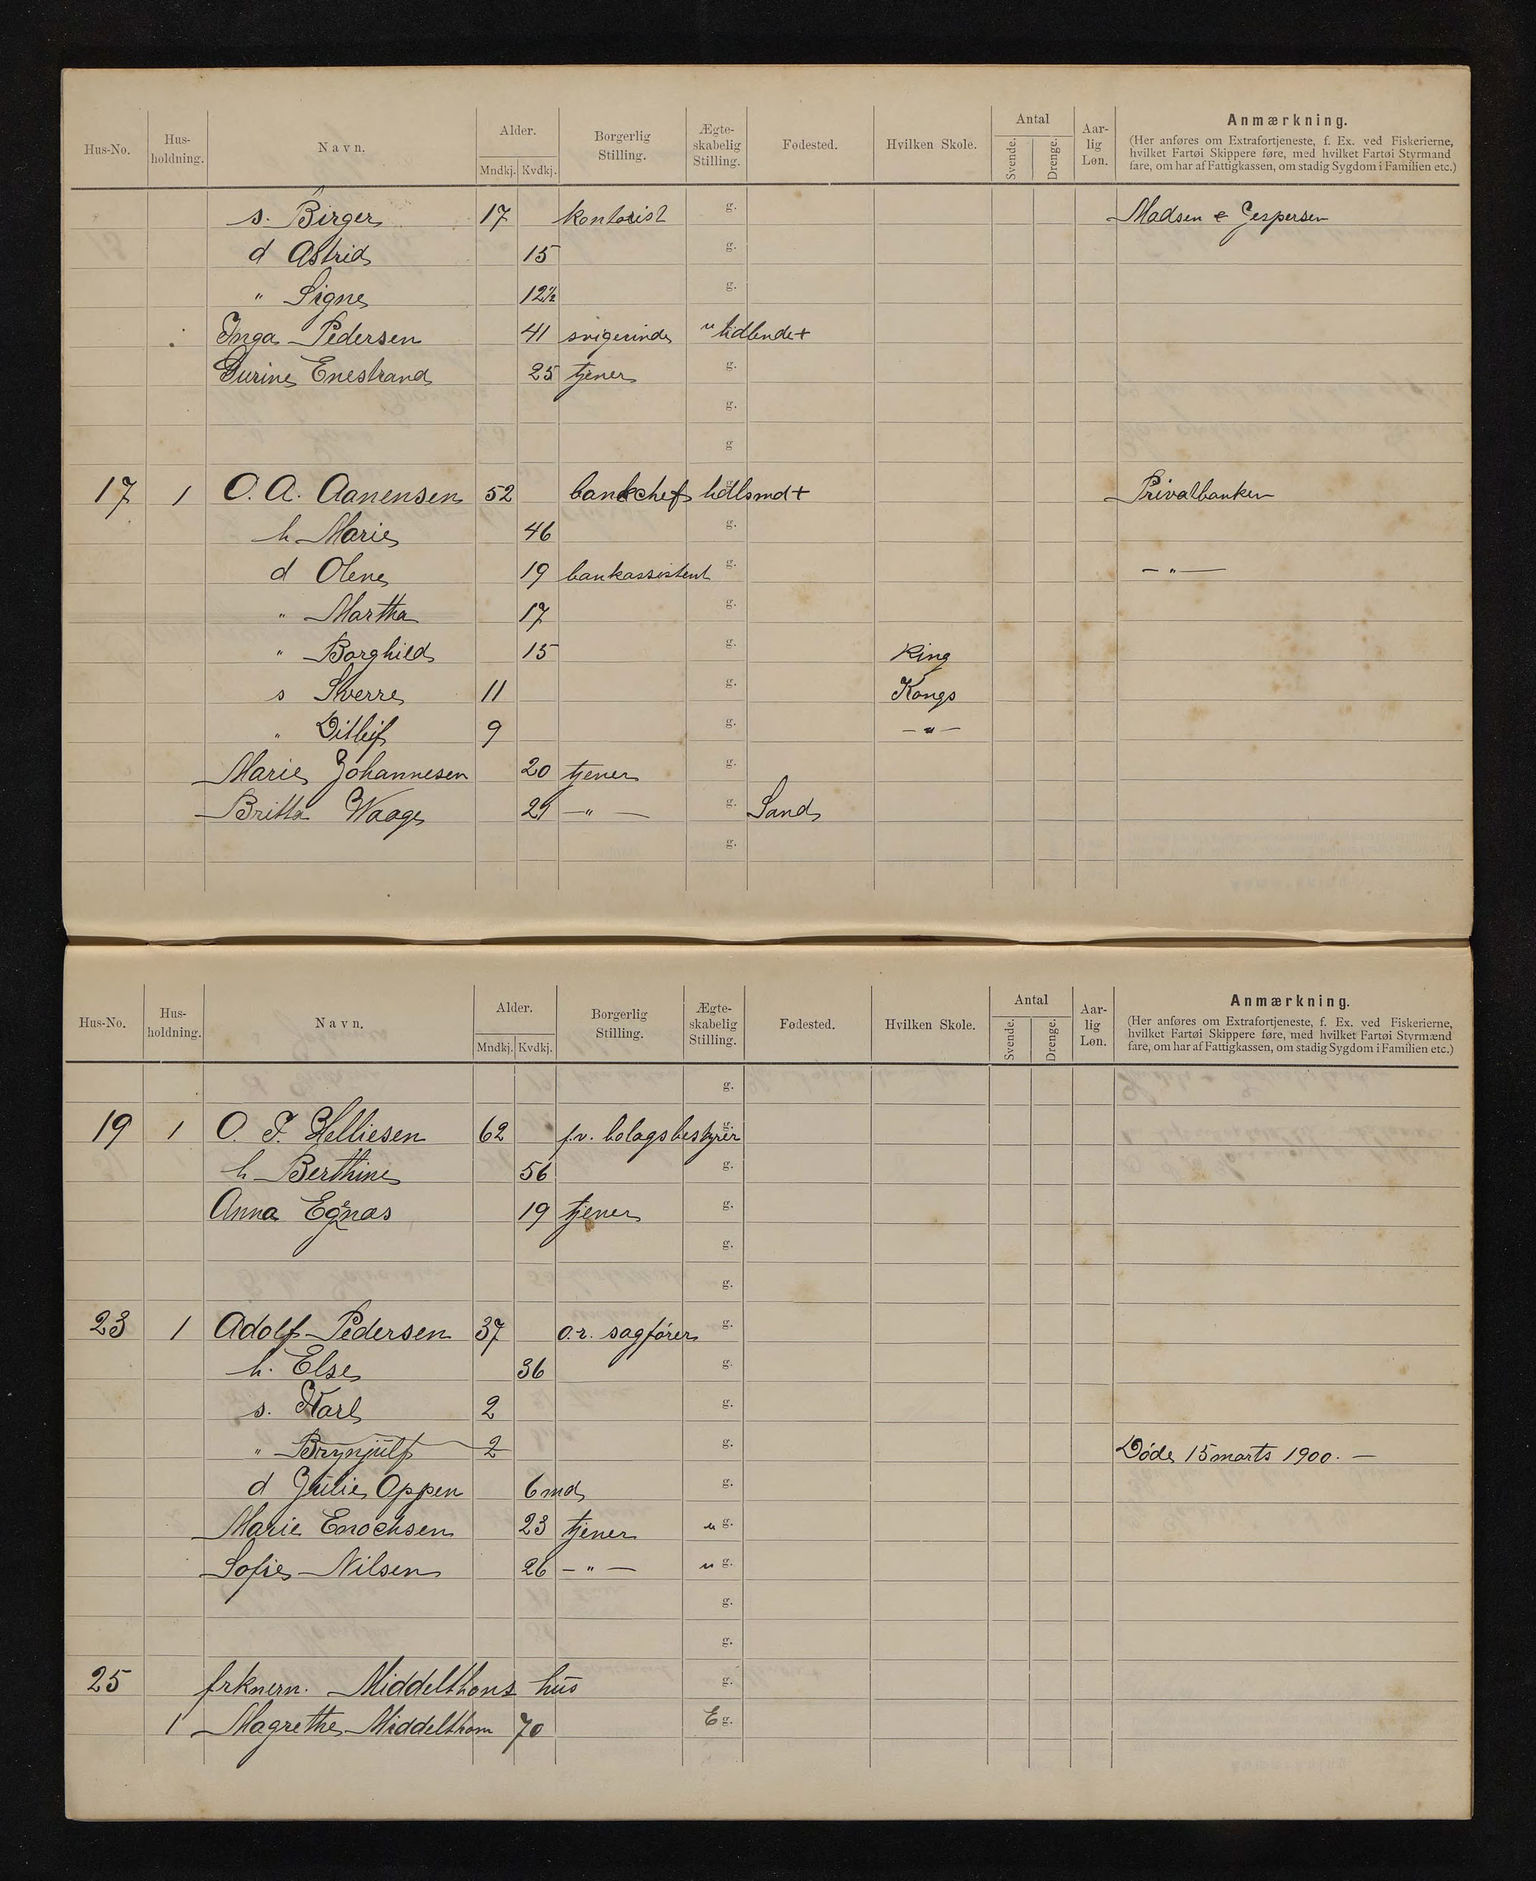 Hus-No. Hus-holdning. Navn. Alder. Mndkj. Kvdkj. Borgerlig Stilling. Ægte-skabelig Stilling. Fødested. Hvilken Skole. Antal Svende. Drenge. Aar-lig Løn. Anmærkning.
(Her anføres om Extrafortjeneste, f. Ex. ved Fiskerierne,
hvilket Fartøi Skippere føre, med hvilket Fartøi Styrmand
fare, om har af Fattigkassen, om stadig Sygdom i Familien etc.)
s. Birger 17 kontorist g. Madsen & Jespersen
d Astrid 15 g.
" Signe 12½ g.
Inga Pedersen 41 svigerinde u tidlendt +
Gurine Enestrand 25 tjener g.
g.
g
17 1 O. A. Aanensen 52 bankchef tidlsmdt + Privatbanken
h Marie 46 g.
d Olene 19 bankassistent g. — " —
" Martha 17 g.
" Borghild 15 g. Ring
s Sverre 11 g. Kongs
" Ditleif 9 g. — " —
Marie Johannesen 20 tjener g.
Britta Waage 29 — " — g. Sand
g.
Hus-No. Hus-holdning. Navn. Alder. Mndkj. Kvdkj. Borgerlig Stilling. Ægte-skabelig Stilling. Fødested. Hvilken Skole. Antal Svende. Drenge. Aar-lig Løn. Anmærkning.
(Her anføres om Extrafortjeneste, f. Ex. ved Fiskerierne,
hvilket Fartøi Skippere føre, med hvilket Fartøi Styrmænd
fare, om har af Fattigkassen, om stadig Sygdom i Familien etc.)
g.
19 1 O. F. Helliesen 62 f.v. bolagsbestyrer g.
h Berthine 56 g.
Anna Egenæs 19 tjener g.
g.
g.
23 1 Adolf Pedersen 37 o.r. sagfører g.
h. Else 36 g.
s. Karl 2 g.
" Brynjulf 2 g. Døde 15 marts 1900. —
d Julie Oppen 6 md g.
Marie Enochsen 23 tjener u g.
Sofie Nilsen 26 — " — u g.
g.
g.
25 frknern. Middelthons hus g.
1 Magrethe Middelthon 70 E g.